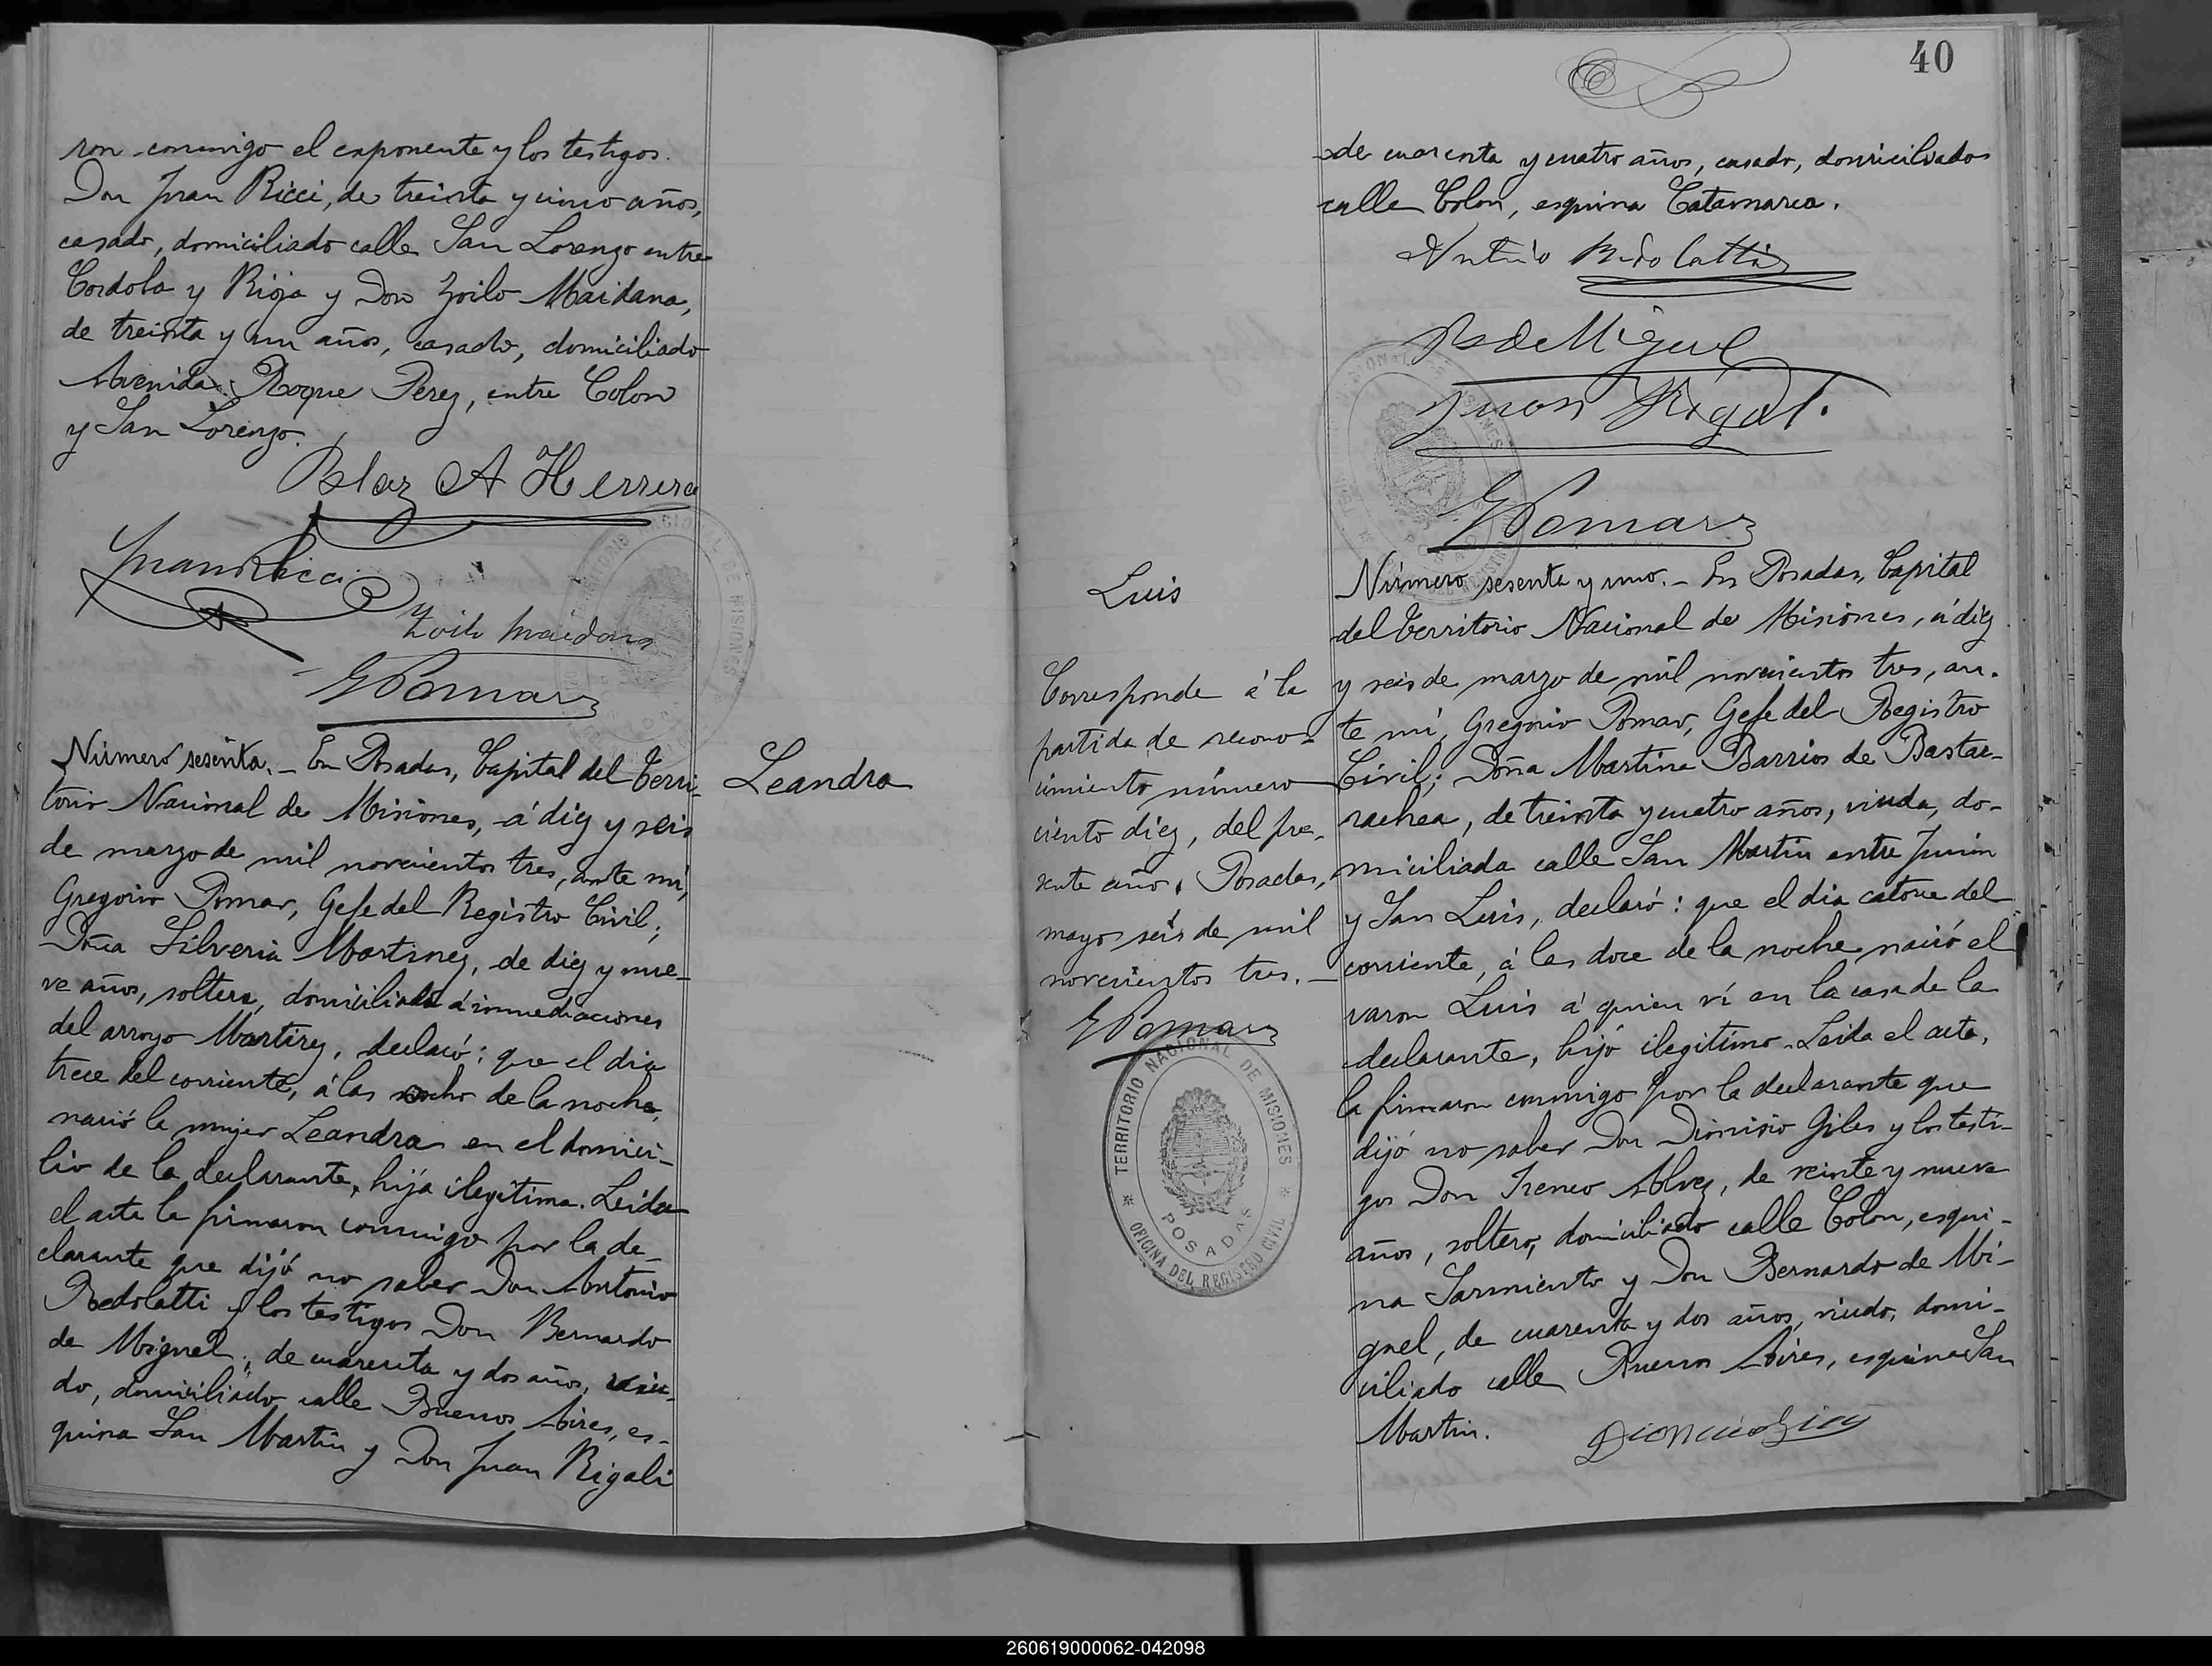 ron conmigo el exponente y los testigos.
Don Juan Ricci, de treinta y cinco años,
casado, domiciliado calle San Lorenzo entre
Cordoba y Rioja y Don Zoilo Maidana,
de treinta y un años, casado, domiciliado
Avenida Roque Perez, entre Colon
y San Lorenzo.
Blaz A Herrera
Juan Ricci
Zoilo Maidana
G Pomar
Número sesenta. - En Posadas, Capital del Terri-
torio Nacional de Misiones, á diez y seis
de marzo de mil novecientos tres, ante mí,
Gregorio Pomar, Gefe del Registro Civil;
Doña Silveria Martinez, de diez y nue-
ve años, soltera, domiciliada á inmediaciones
del arroyo Martirez, declaró: que el dia
trece del corriente, á las ocho de la noche,
nació la mujer Leandra en el domici-
lio de la declarante, hija ilegítima. Leida
el acta la firmaron conmigo por la de-
clarante que dijó no saber Don Antonio
Redolatti y los testigos Don Bernardo
de Miguel, de cuarenta y dos años, viu-
do, domiciliado calle Buenos Aires, es-
quina San Martin y Don Juan Rigali
Leandra
40
de cuarenta y cuatro años, casado, domiciliado
calle Colon, esquina Catamarca.
Antonio Redolatti
B de Miguel
Juan Rigali
G Pomar
Luis
Corresponde á la
partida de recono-
cimiento número
ciento diez, del pre-
sente año. Posadas,
mayo seis de mil
novecientos tres.-
G Pomar
TERRITORIO NACIONAL DE MISIONES
POSADAS
OFICINA DEL REGISTRO CIVIL
Número sesenta y uno. - En Posadas, Capital
del Territorio Nacional de Misiones, á diez
y seis de marzo de mil novecientos tres, an-
te mí, Gregorio Pomar, Gefe del Registro
Civil; Doña Martina Barrios de Bastar-
rachea, de treinta y cuatro años, viuda, do-
miciliada calle San Martin entre Junin
y San Luis, declaró: que el dia catorce del
corriente, á las doce de la noche nació el
varon Luis á quien ví en la casa de la
declarante, hijo ilegítimo. Leida el acta,
la firmaron conmigo por la declarante que
dijó no saber Don Dionisio Giles y los testi-
gos Don Ireneo Alvez, de veinte y nueve
años, soltero, domiciliado calle Colon, esqui-
na Sarmiento y Don Bernardo de Mi-
guel, de cuarenta y dos años, viudo, domi-
ciliado calle Buenos Aires, esquina San
Martin.
260619000062-042098